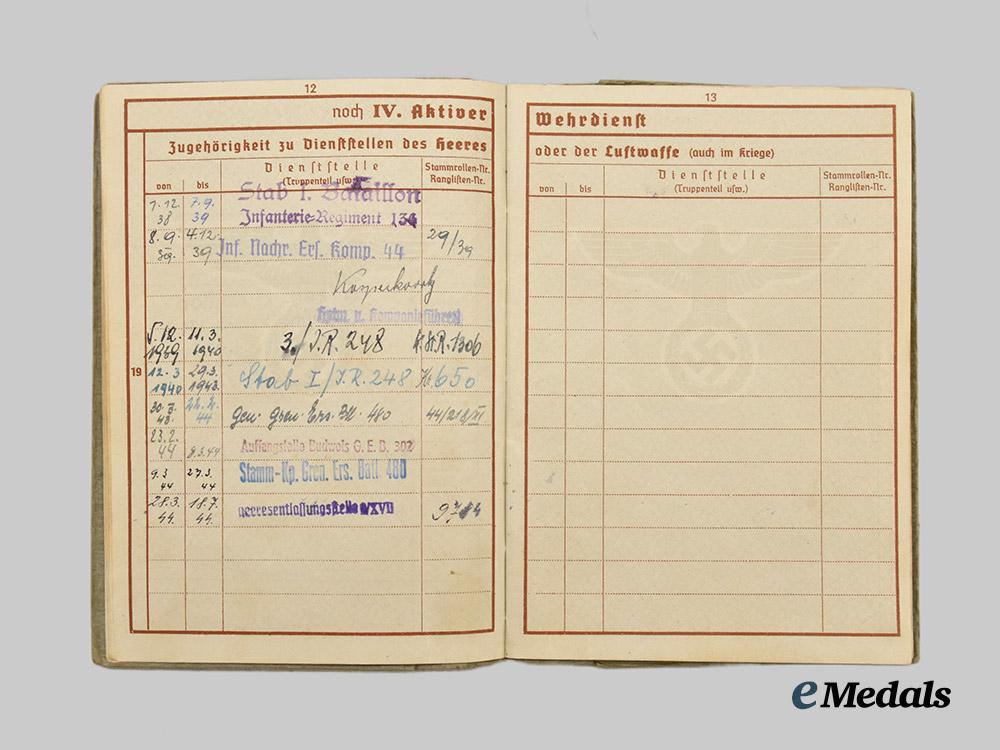 12
noch IV. Aktiver
Zugehörigkeit zu Dienststellen des Heeres
von bis Dienststelle (Truppenteil usw.) Stammrollen-Nr. Ranglisten-Nr.
1.12. 38 7.9. 39 Stab I. Bataillon
Infanterie-Regiment 134
8.9. 39. 4.12. 39 Inf. Nachr. Ers. Komp. 44 29/39
Hptm. u. Kompanieführer
5.12. 1939 11.3. 1940 3./J.R. 248 1306
19 12.3 1940 29.3. 1943. Stab I/J.R. 248 650
44 gen. gren. Ers. Btl. 480
23.2. 44 8.3.44 Auffangstelle Budweis G.E.B. 302
9.3 44 27.3. 44 Stamm-Kp. Gren. Ers. Batl. 480
28.3. 44. 18.7. 44. Heeresentlassungsstelle
13
Wehrdienst
oder der Luftwaffe (auch im Kriege)
von bis Dienststelle (Truppenteil usw.) Stammrollen-Nr. Ranglisten-Nr.
eMedals